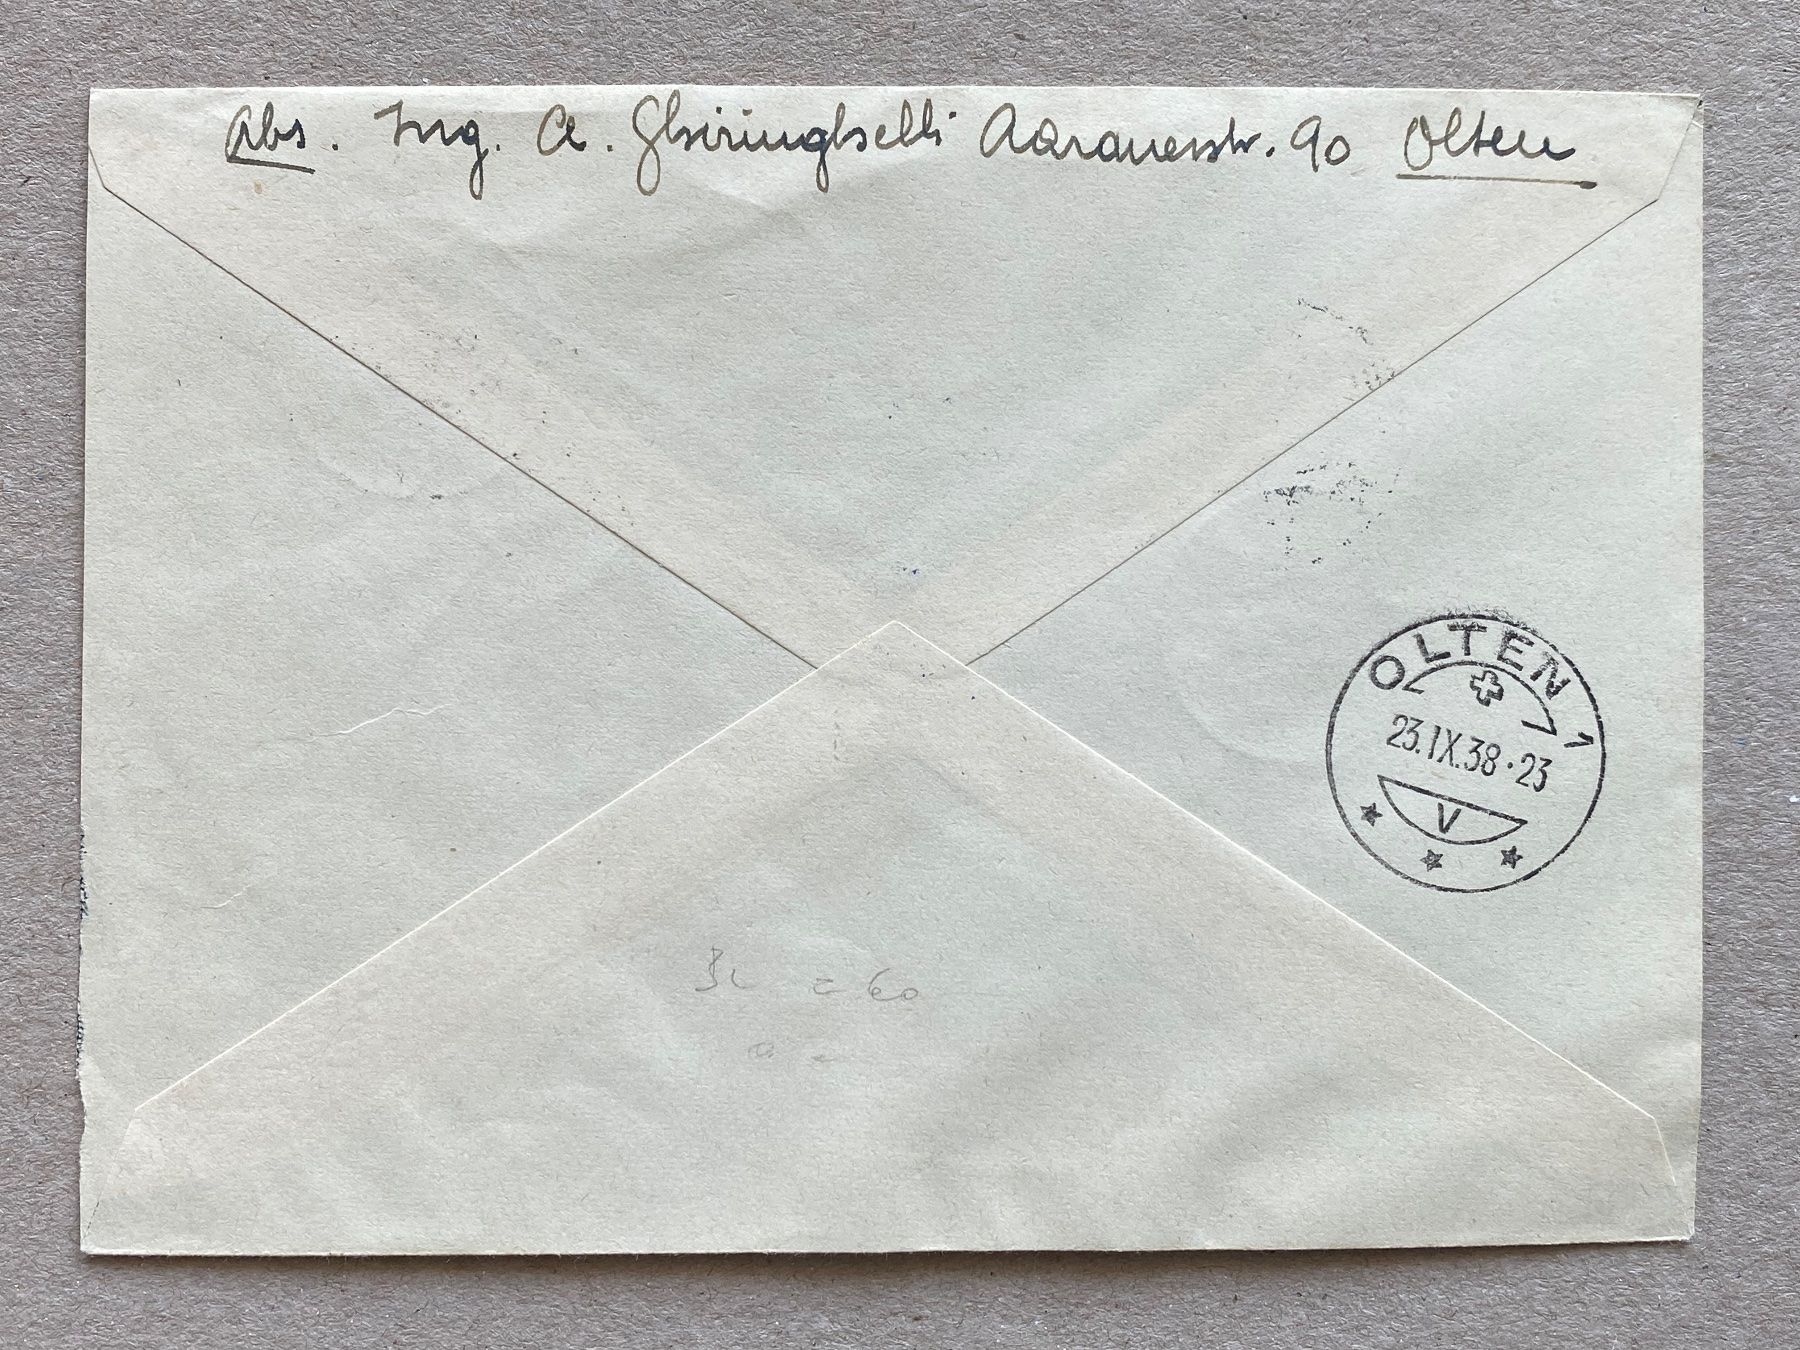 Abs. Ing. A. Ghiringhelli Aarauerstr. 90 Olten
OLTEN 1
23.IX.38·23
V
= 60